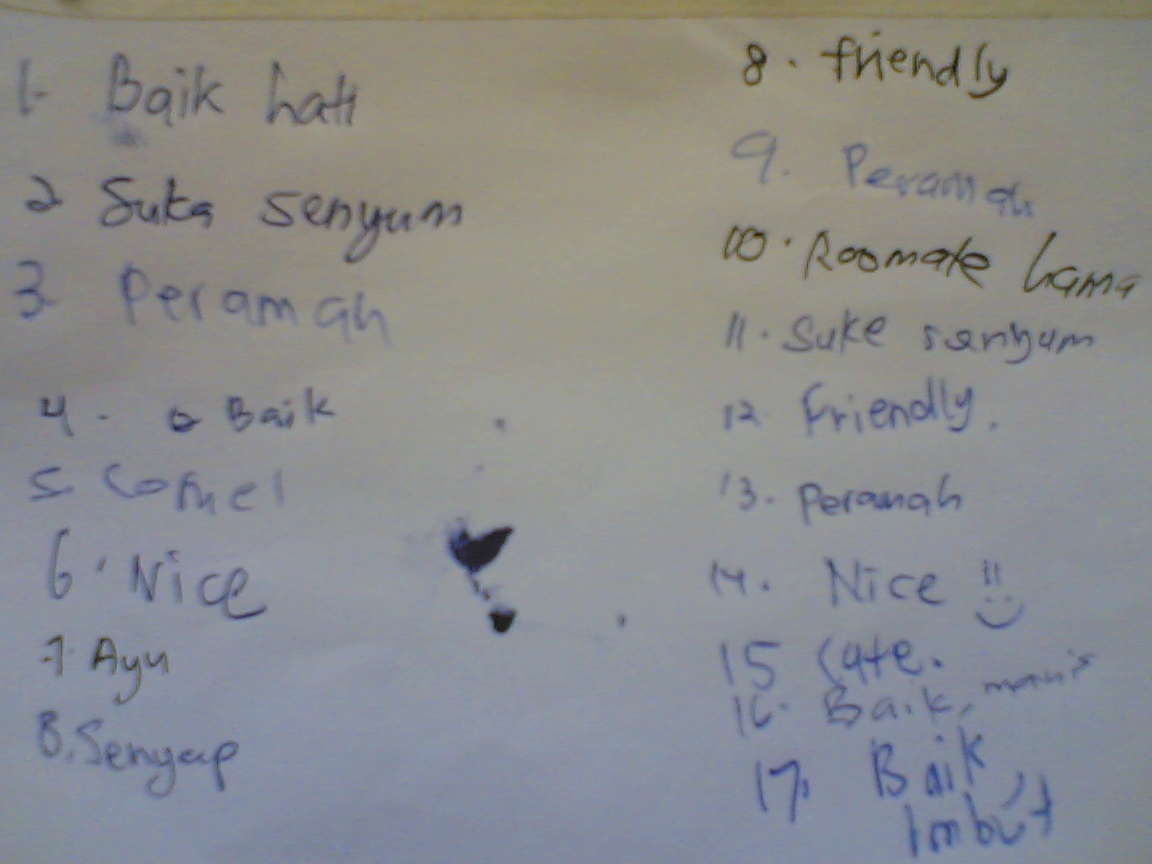 1. Baik hati
2 Suka senyum
3. Peramah
4. Baik
5. Comel
6. Nice
7. Ayu
8. Senyap
8. friendly
9. Peramah
10. Roomate lama
11. Suke senyum
12 Friendly.
13. peramah
14. Nice !!
15 Cute.
16. Baik, manis
17. Baik,
Imbut